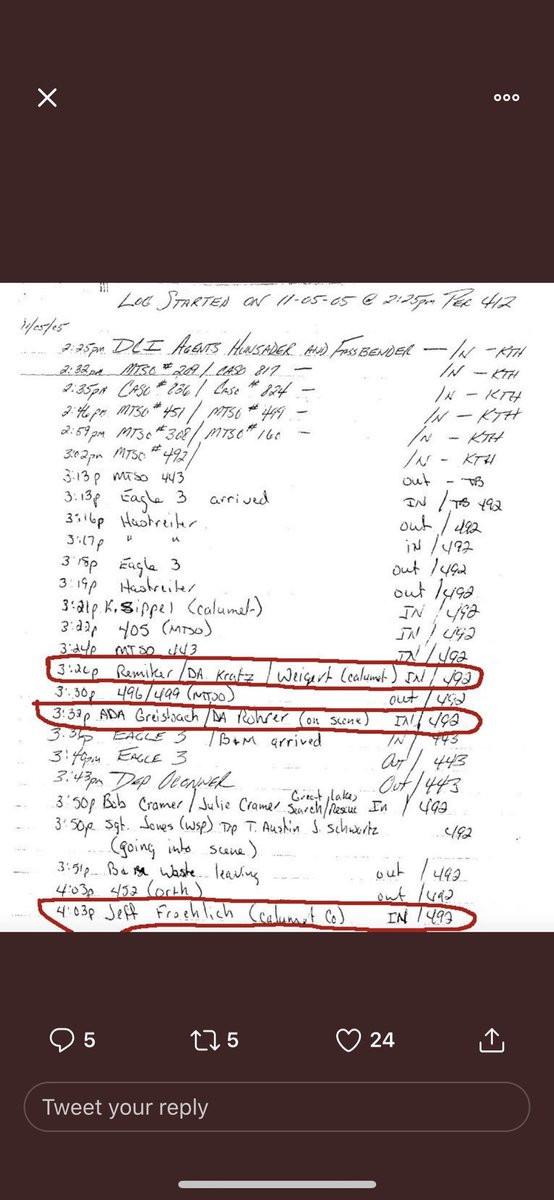 LOG STARTED ON 11-05-05 @ 2:25pm PER 412
11/05/05
2:25pm DCI AGENTS HUNSADER AND FASSBENDER — IN - KTH
2:32pm MTSO # 209 / CASO 817 — IN - KTH
2:35pm CASO # 236 / CASO # 824 — IN - KTH
2:46pm MTSO # 451 / MTSO # 499 — IN - KTH
2:59pm MTSO # 308 / MTSO # 160 — IN - KTH
3:02pm MTSO # 492 / IN - KTH
3:13p MTSO 443 out - TB
3:13p Eagle 3 arrived IN / TB 492
3:16p Hastreiter out / 492
3:17p " " in / 492
3:18p Eagle 3 out / 492
3:19p Hastreiter out / 492
3:21p K. Sippel (calumet) IN / 492
3:22p 405 (MTSO) IN / 492
3:24p MTSO 443 IN / 492
3:26p Remiker / DA Kratz / Weigert (calumet) IN / 492
3:30p 496/499 (MTSO) out / 492
3:32p ADA Greisbach / DA Rohrer (on scene) IN / 492
EAGLE 3 / B+M arrived IN / 443
3:40pm EAGLE 3 Out / 443
3:43pm DEP OCONNER Out / 443
3:50p Bob Cramer / Julie Cramer Great Lakes Search/Rescue In / 492
3:50p Sgt. Jones (WSP) Trp T. Austin J. Schwartz 492
(going into scene)
3:51p B+M waste leaving out / 492
4:03p 452 (orth) out / 492
4:03p Jeff Froehlich (calumet Co) IN / 492
5
5
24
Tweet your reply